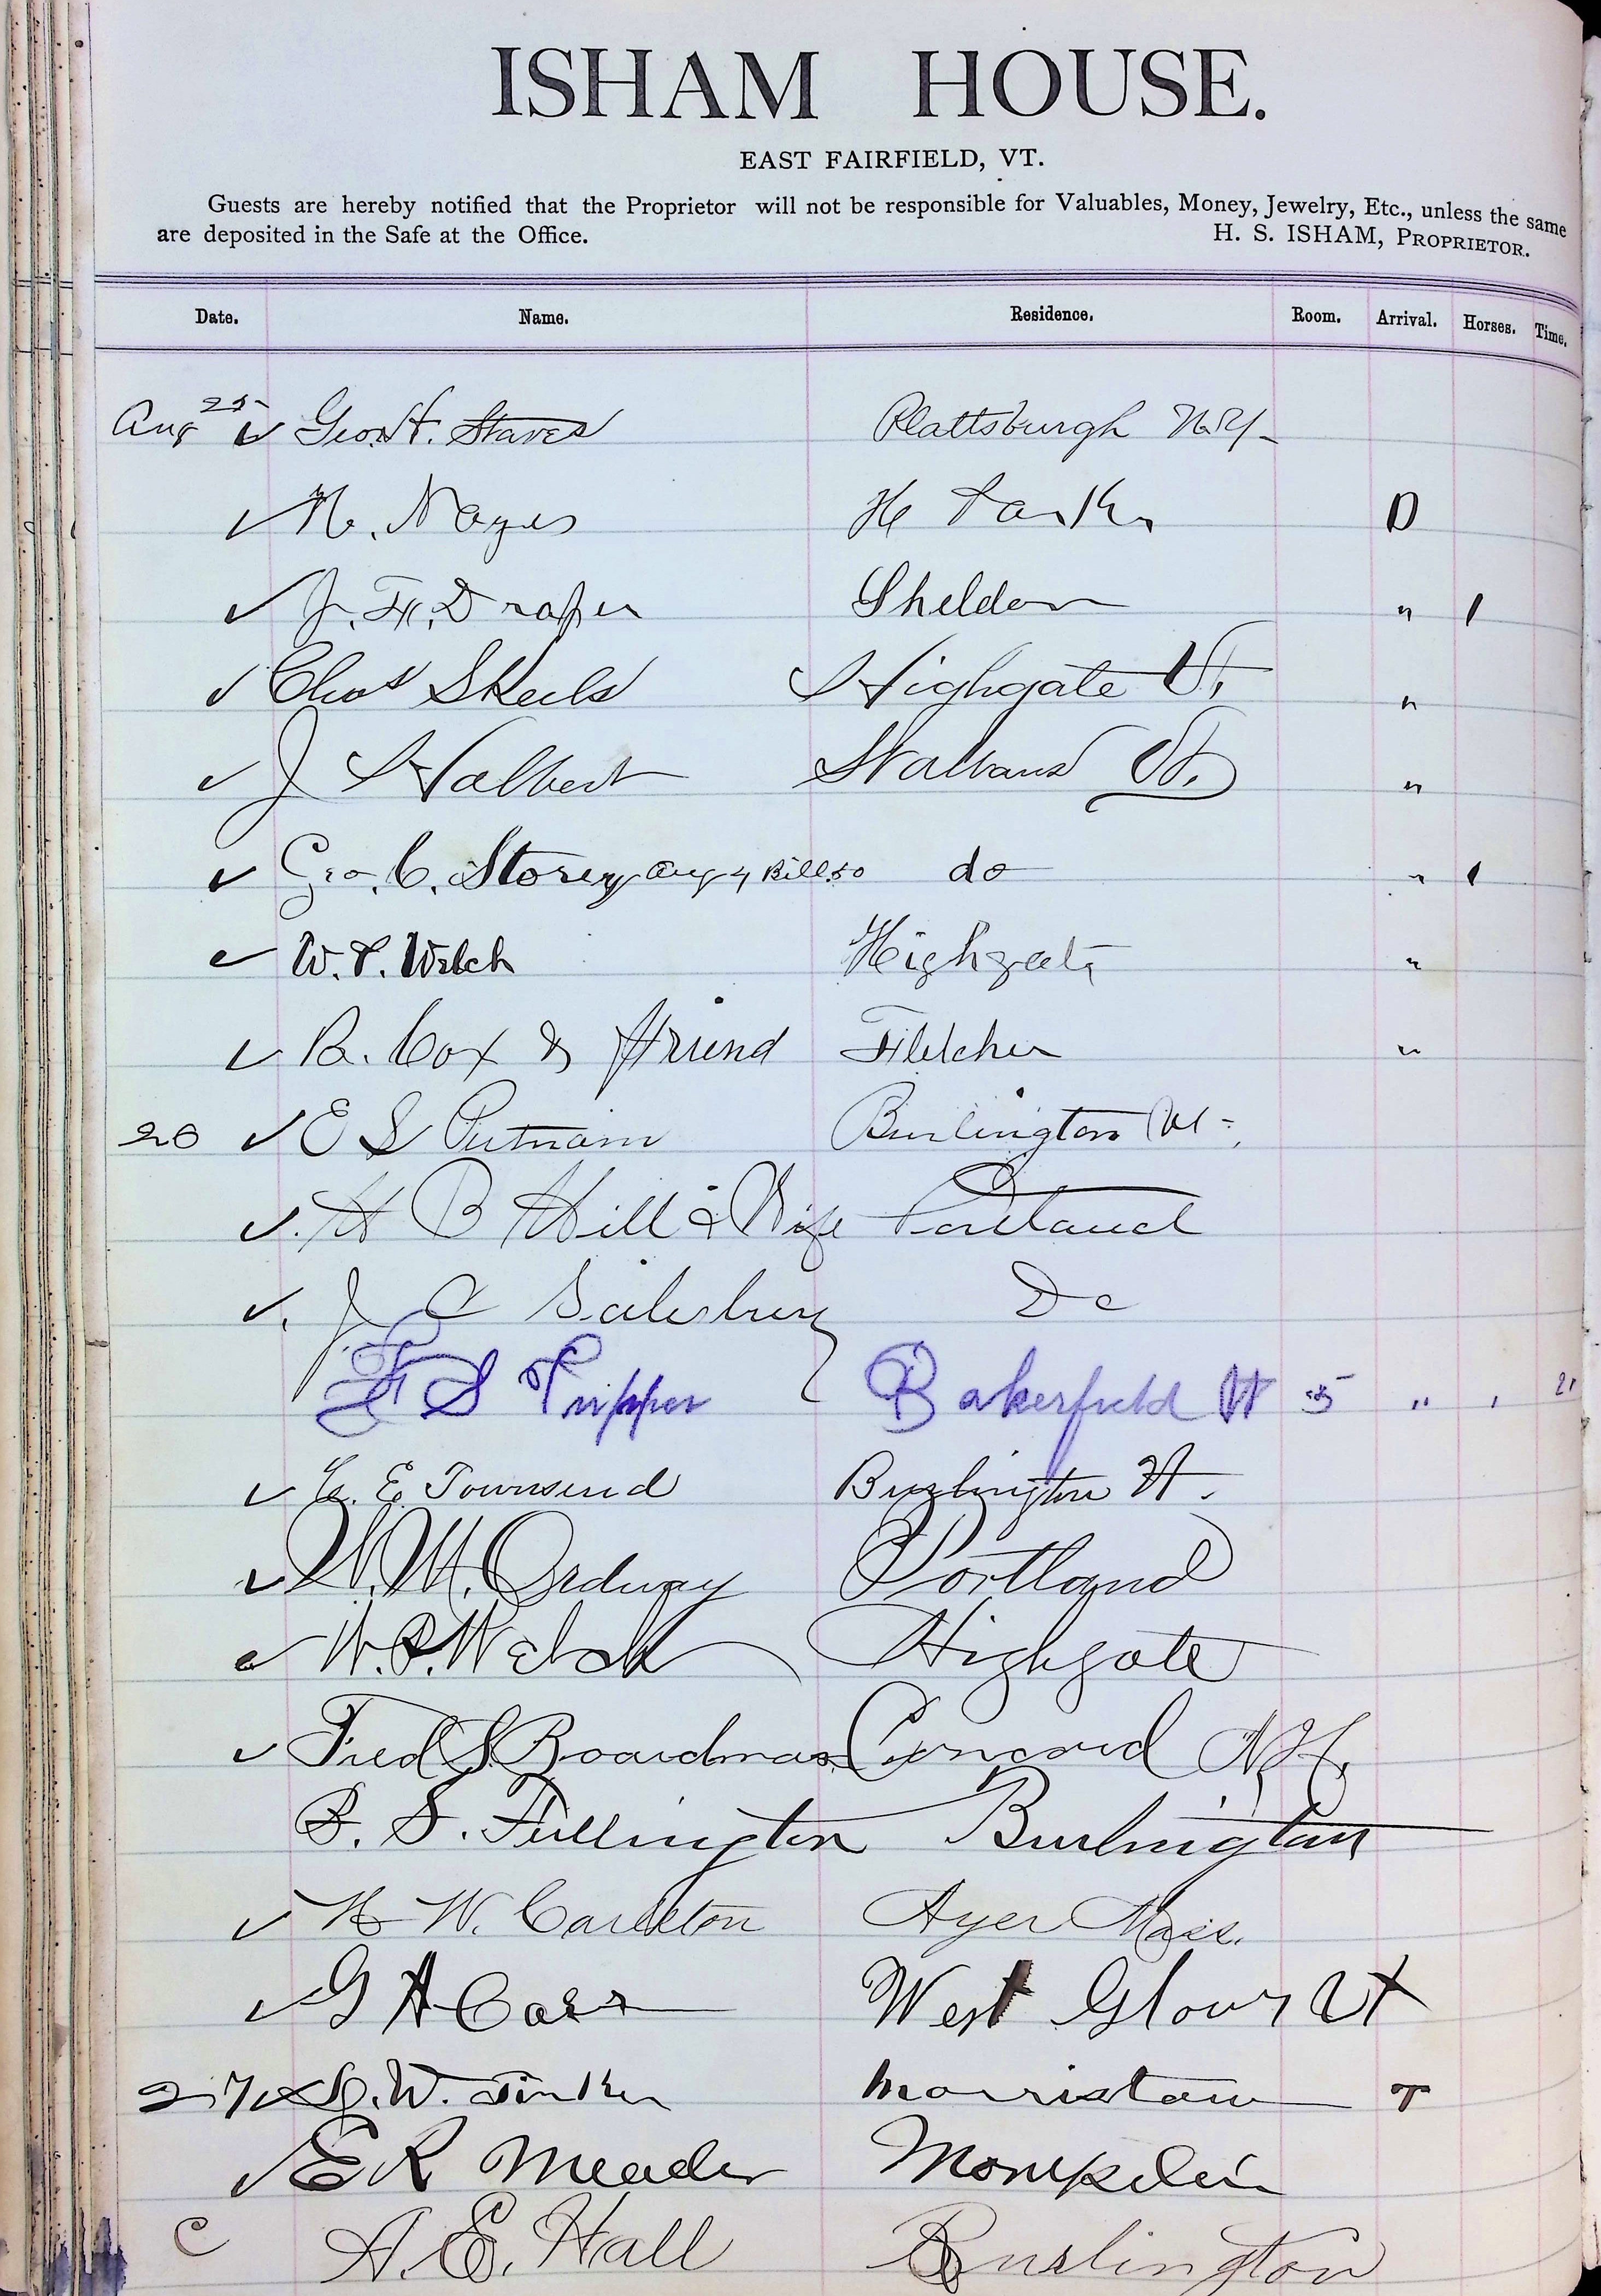 ISHAM HOUSE.
EAST FAIRFIELD, VT.
Guests are hereby notified that the Proprietor will not be responsible for Valuables, Money, Jewelry, Etc., unless the same
are deposited in the Safe at the Office. H. S. ISHAM, PROPRIETOR.
Date. Name. Residence. Room. Arrival. Horses. Time.
Aug 25 ✓ Geo. H. Staves Plattsburgh N.Y.
✓ N. Noyes H D
✓ J. H. Draper Sheldon " 1
✓ Chas Skeels Highgate Vt. "
✓ J Halbert St Albans Vt. "
✓ Geo. C. Storey Aug 4 Bill .50 do " 1
✓ W. P. Welch Highgate "
✓ R. Cox & friend Fletcher "
26 ✓ E S Putnam Burlington Vt
✓ H B Hill & Wife Portland
✓ J C Salesbury Do
F S Tupper Bakerfield Vt " "
✓ C. E. Townsend Burlington Vt.
✓ W. M. Ordway Portland
✓ W. P. Welch Highgate
✓ Fred S. Boardman Concord N.H.
B. S. Fullington Burlington
✓ W. Carleton Ayer Mass.
✓ G A Carr West Glover Vt
27 W. Tinker Morristown T
✓ E R Meader Montpelier
C A. E. Hall Burlington